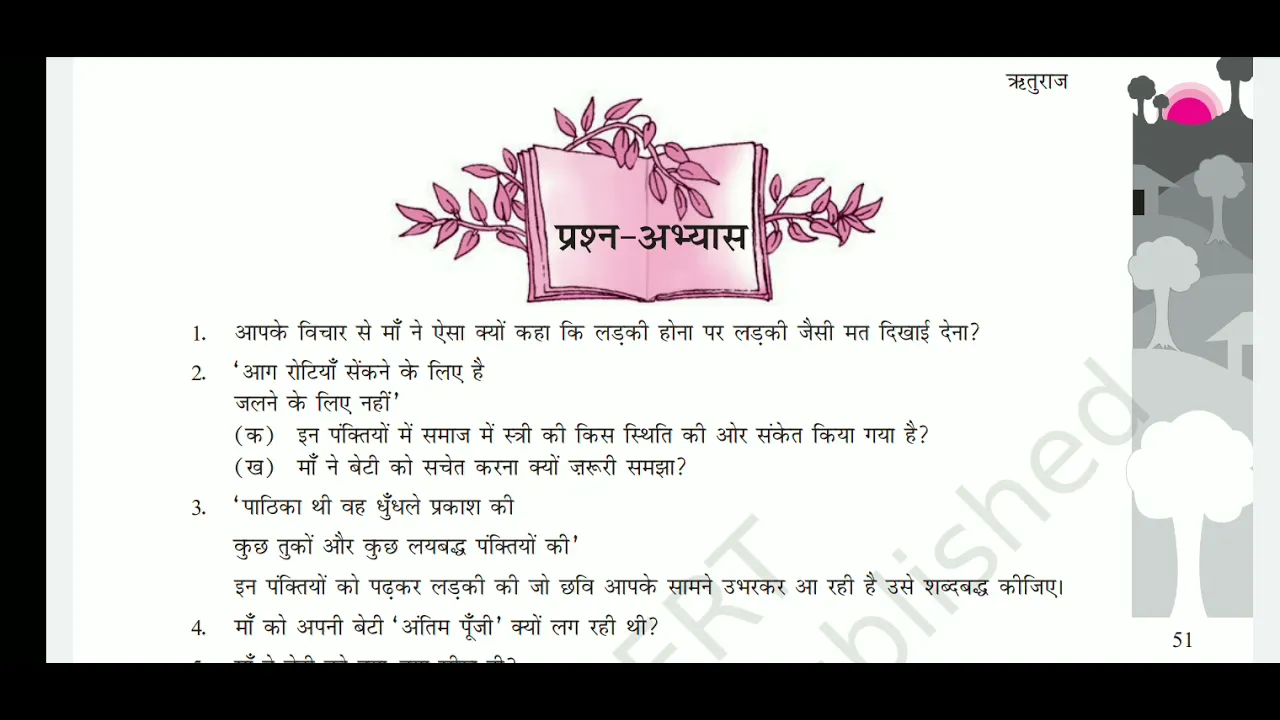 ऋतुराज
प्रश्न-अभ्यास
1. आपके विचार से माँ ने ऐसा क्यों कहा कि लड़की होना पर लड़की जैसी मत दिखाई देना?
2. ‘आग रोटियाँ सेंकने के लिए है
जलने के लिए नहीं’
(क) इन पंक्तियों में समाज में स्त्री की किस स्थिति की ओर संकेत किया गया है?
(ख) माँ ने बेटी को सचेत करना क्यों ज़रूरी समझा?
3. ‘पाठिका थी वह धुँधले प्रकाश की
कुछ तुकों और कुछ लयबद्ध पंक्तियों की’
इन पंक्तियों को पढ़कर लड़की की जो छवि आपके सामने उभरकर आ रही है उसे शब्दबद्ध कीजिए।
4. माँ को अपनी बेटी ‘अंतिम पूँजी’ क्यों लग रही थी?
51